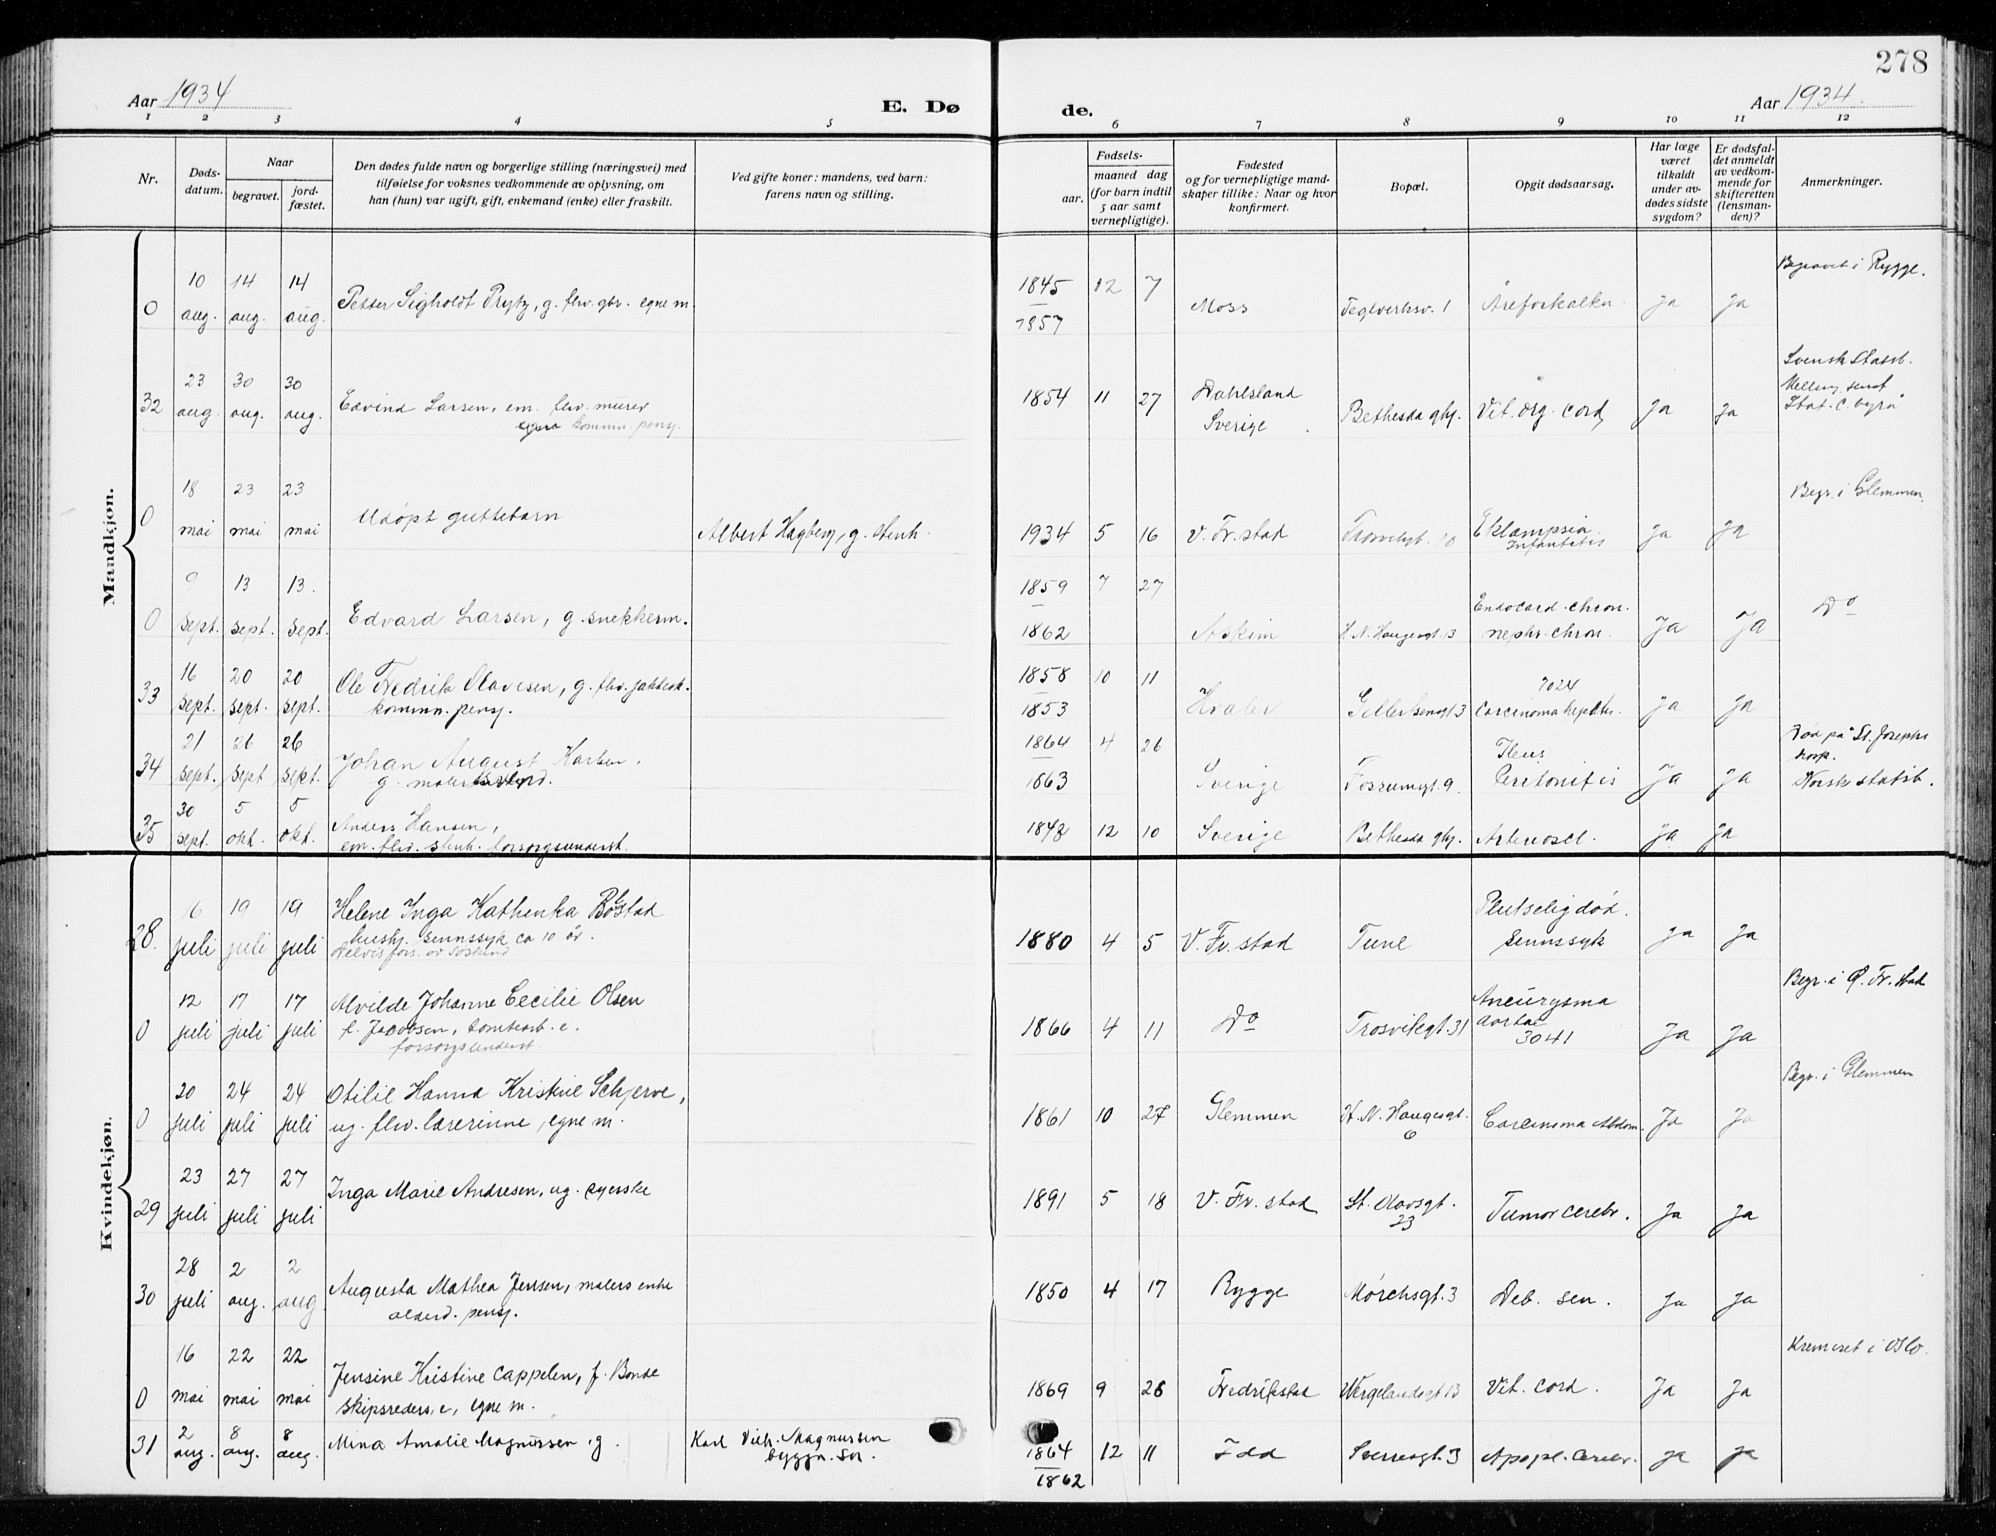 278
Aar 1934
E. Døde.
Aar 1934.
1 2 3 4 5 6 7 8 9 10 11 12
Nr.
Døds-
datum.
Naar
begravet.
jord-
fæstet.
Den dødes fulde navn og borgerlige stilling (næringsvei) med
tilføielse for voksnes vedkommende av oplysning, om
han (hun) var ugift, gift, enkemand (enke) eller fraskilt.
Ved gifte koner: mandens, ved barn:
farens navn og stilling.
Fødsels-
aar.
maaned dag
(for barn indtil
5 aar samt
vernepligtige).
Fødested
og for vernepligtige mand-
skaper tillike: Naar og hvor
konfirmert.
Bopæl.
Opgit dødsaarsag.
Har læge
været
tilkaldt
under av-
dødes sidste
sygdom?
Er dødsfal-
det anmeldt
av vedkom-
mende for
skifteretten
(lensman-
den)?
Anmerkninger.
Mandkjøn.
Begravet i Rygge.
10 14 14 1845 12 7
0 aug. aug. aug. Petter Sigholdt Prytz, g. fhv. gbr. egne m. 1857 Moss Teglverksv. 1 Åreforkalkn. Ja Ja
Svensk Statsb.
23 30 30
32 aug. aug. aug. Edvind Larsen, em. fhv. murer 1854 11 27 Dahlsland Sverige Bethesda ghj. Vit. org. cord. Ja Ja
komm. pensj.
Stat. c. byrå
18 23 23 Begr. i Glemmen.
0 mai mai mai Udøpt guttebarn Albert Hagberg, g. stenh. 1934 5 16 V. Fr.stad Trosvikgt. 10 Eklampsia Ja Ja
9 13 13. 1859 7 27
0 sept. sept. sept. Edvard Larsen, g. snekkerm. 1862 Askim H. N. Haugesgt. 13 Endocard. chron. nephr. chron. Ja Ja Do
16 20 20 1858 10 11 7024
33 sept. sept. sept. Ole Fredrik Olavesen, g. fhv. 1853 Hvaler Carcinoma hepatis. Ja Ja
komm. pensj.
21 26 26 1864 4 26 Ileus Død på St. Josephs hosp.
34 sept. sept. sept. Johan August 1863 Sverige Fossumgt. 9. Peritonitis Ja Ja Norsk statsb.
g. maler
30 5 5
35 sept. okt. okt. Anders Hansen, 1848 12 10 Sverige Bethesda ghj. Arterioscl. Ja Ja
em. fhv. stenh. forsorgsunderst.
Kvindekjøn.
16 19 19 Plutselig død.
28. juli juli juli Helene Inga Kathenka Bøgstad 1880 4 5 V. Fr.stad Tune sinnssyk Ja Ja
hush. sinnssyk ca 10 år.
Delvis fors. av søskend
12 17 17 Begr. i Ø. Fr. stad
0 juli juli juli Alvilde Johanne Cecilie Olsen 1866 4 11 Do Trosvikgt. 31 Aneurysma aortae 3041 Ja Ja
f. Jacobsen, tomtearb. e.
forsorgsunderst.
20 24 24 Begr. i Glemmen
0 juli juli juli Otilie Hanna Kristine Schjerve, 1861 10 27 Glemmen H. N. Haugesgt. 6 Carcinoma Abdom. Ja Ja
ug. fhv. lærerinne, egne m.
23 27 27
29 juli juli juli Inga Marie Andresen, ug. syerske 1891 5 18 V. Fr. stad St. Olavsgt. 23 Tumor cerebr. Ja Ja
28 2 2
30 juli aug. aug Augusta Mathea Jensen, malers enke 1850 4 17 Rygge Mørchsgt. 3 Deb. sen. Ja Ja
alderd. pensj.
16 22 22 Kremeret i Oslo.
0 mai mai mai Jensine Kristine Cappelen, f. Bonde 1869 9 26 Fredrikstad Wergelandsgt 13 Vit. cord. Ja Ja
skipsreders, e, egne m.
2 8 8
31 aug. aug. aug. Mina Amalie Magnussen, g. Karl Vilh. Magnussen 1864 12 11 Idd Sverresgt. 3 Apopl. cerebr. Ja Ja
1862